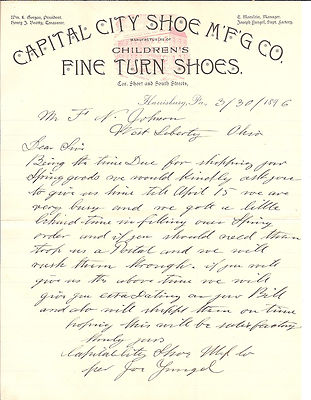 Wm. K. Gorgas, President.
Henry J. Beatty, Treasurer.
E. Moeslein, Manager.
Joseph Gungel, Supt. Factory.
CAPITAL CITY SHOE M'F'G CO.
MANUFACTURERS OF
CHILDREN'S
FINE TURN SHOES.
Cor. Short and South Streets,
Harrisburg, Pa., 3/30/1896
Mr F N Johnson
West Liberty Ohio
Dear Sir
Being the time Due for shipping your
Spring goods we would kindly ask you
to give us time till April 15 we are
very busy and we got a little
behind-time in filling our Spring
order and if you should need them
drop us a Postal and we will
rush them through. if you will
give us the above time we will
give you extra Dating on your Bill
and also will shipp them on time
hoping this will be satisfactory
truly yours
Capital City Shoe Mfg Co
per Joe Gungel